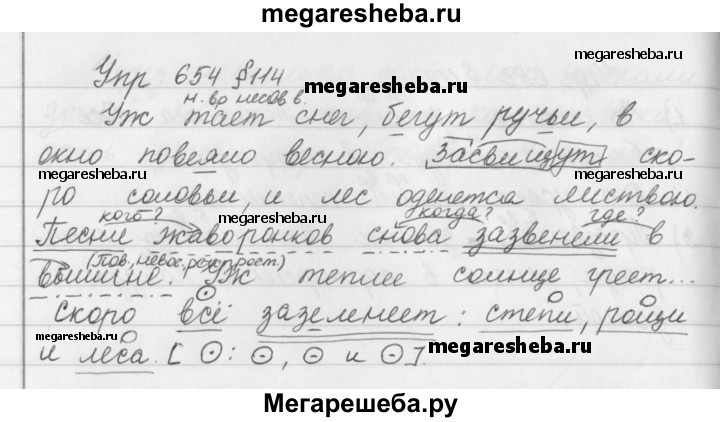 megaresheba.ru
megaresheba.ru
Упр 654 §114
megaresheba.ru
н.вр несов в.
Уж тает снег, бегут ручьи, в
окно повеяло весною. Засвищут ско-
megaresheba.ru
megaresheba.ru
ро соловьи, и лес оденется листвою.
кого? когда? где?
megaresheba.ru
Песни жаворонков снова зазвенели в
(Пов., невос., распрост.)
вышине. Уж теплее солнце греет...
Скоро всё зазеленеет: степи, рощи
megaresheba.ru
megaresheba.ru
и леса. [ʘ: ʘ, ʘ и ʘ].
Мегарешеба.ру